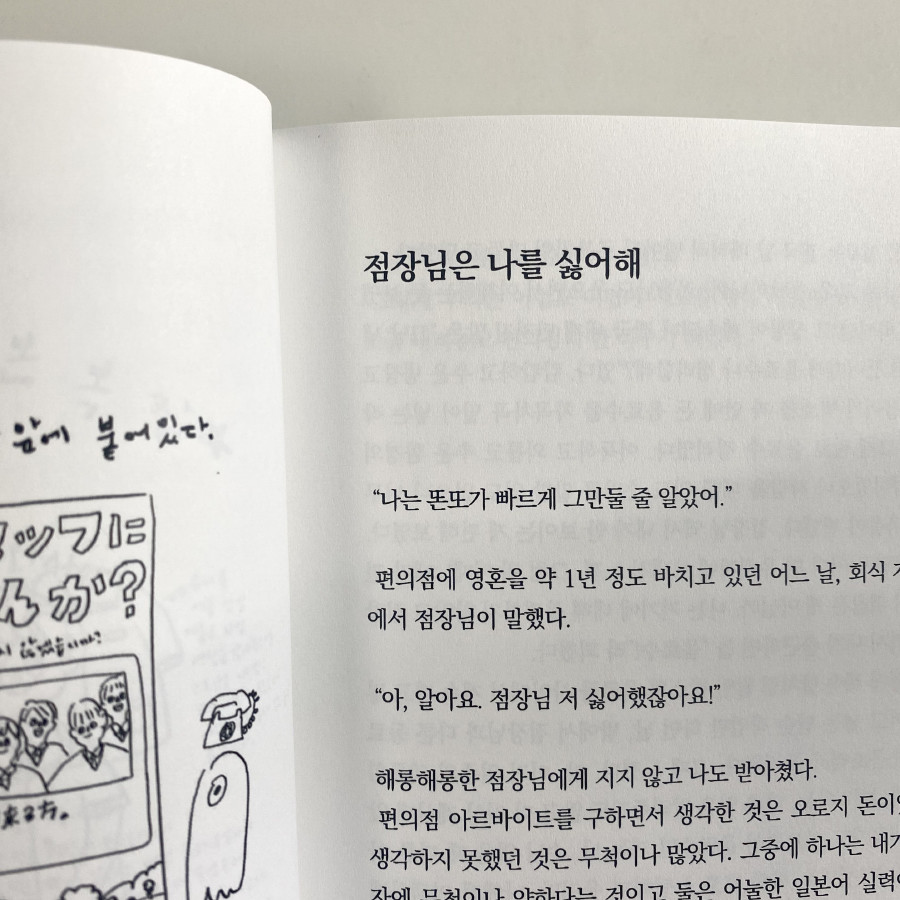 앞에 붙어있다.
ッフに
んか?
지 않겠습니까?
점장님은 나를 싫어해
“나는 똔또가 빠르게 그만둘 줄 알았어.”
편의점에 영혼을 약 1년 정도 바치고 있던 어느 날, 회식
에서 점장님이 말했다.
“아, 알아요. 점장님 저 싫어했잖아요!”
해롱해롱한 점장님에게 지지 않고 나도 받아쳤다.
편의점 아르바이트를 구하면서 생각한 것은 오로지 돈이
생각하지 못했던 것은 무척이나 많았다. 그중에 하나는 내가
무척이나 약하다는 것이고 둘은 어눌한 일본어 실력